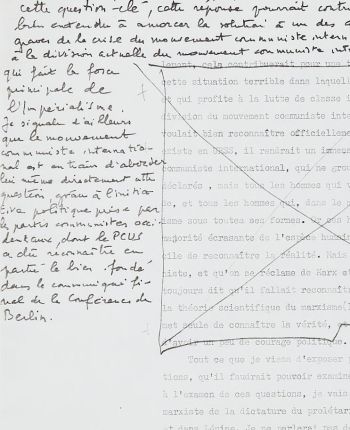 cette question-clé, cette réponse pourrait contri
bien entendu à amorcer la solution à un des a
graves de la crise du mouvement communiste intern
à la division actuelle du mouvement communiste inte
qui fait la force
principale de
l'Impérialisme.
Je signale d'ailleurs
que le mouvement
communiste internatio-
nal est en train d'aborder
lui même directement cette
question, grâce à l'initia-
tive politique prise par
les partis communistes occi
dentaux, dont le PCUS
a dû reconnaître en
partie le bien fondé
dans le communiqué fi-
nal de la Conférence de
Berlin.
cela contribuerait pour une
cette situation terrible dans laquell
et qui profite à la lutte de classe i
division du mouvement communiste inte
voulait bien reconnaître officiellemen
existe en URSS, il rendrait un immens
communiste international, qui ne grou
déclarés, mais tous les hommes qui v
e, et tous les hommes qui, dans le
isme sous toutes ses formes.
majorité écrasante de l'espèce humai
cile de reconnaître la réalité. Mais
niste, et qu'on se réclame de Marx et
toujours dit qu'il fallait reconnaîtr
la théorie scientifique du marxisme
met seule de connaître la vérité, et
d'avoir un peu de courage politique.
Tout ce que je viens d'exposer
tions, qu'il faudrait pouvoir examine
à l'examen de ces questions, je vais
marxiste de la dictature du prolétari
et dans Lénine. Je ne parlerai pas de